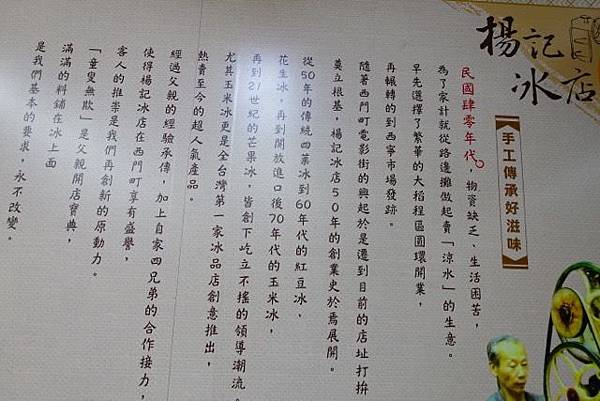 楊記
冰店
手工傳承好滋味
民國肆零年代，物資缺乏、生活困苦，
為了家計就從路邊攤做起賣「涼水」的生意。
早先選擇了繁華的大稻埕區圓環開業，
再輾轉的到西寧市場發跡。
隨著西門町電影街的興起於是遷到目前的店址打拚
奠立根基，楊記冰店50年的創業史於焉展開。
從50年的傳統四菓冰到60年代的紅豆冰、
花生冰，再到開放進口後70年代的玉米冰，
再到21世紀的芒果冰，皆創下屹立不搖的領導潮流。
尤其玉米冰更是全台灣第一家冰品店創意推出，
熱賣至今的超人氣產品。
經過父親的經驗承傳，加上自家四兄弟的合作接力，
使得楊記冰店在西門町享有盛譽，
客人的推崇是我們再創新的原動力。
「童叟無欺」是父親開店寶典，
滿滿的料鋪在冰上面
是我們基本的要求，永不改變。